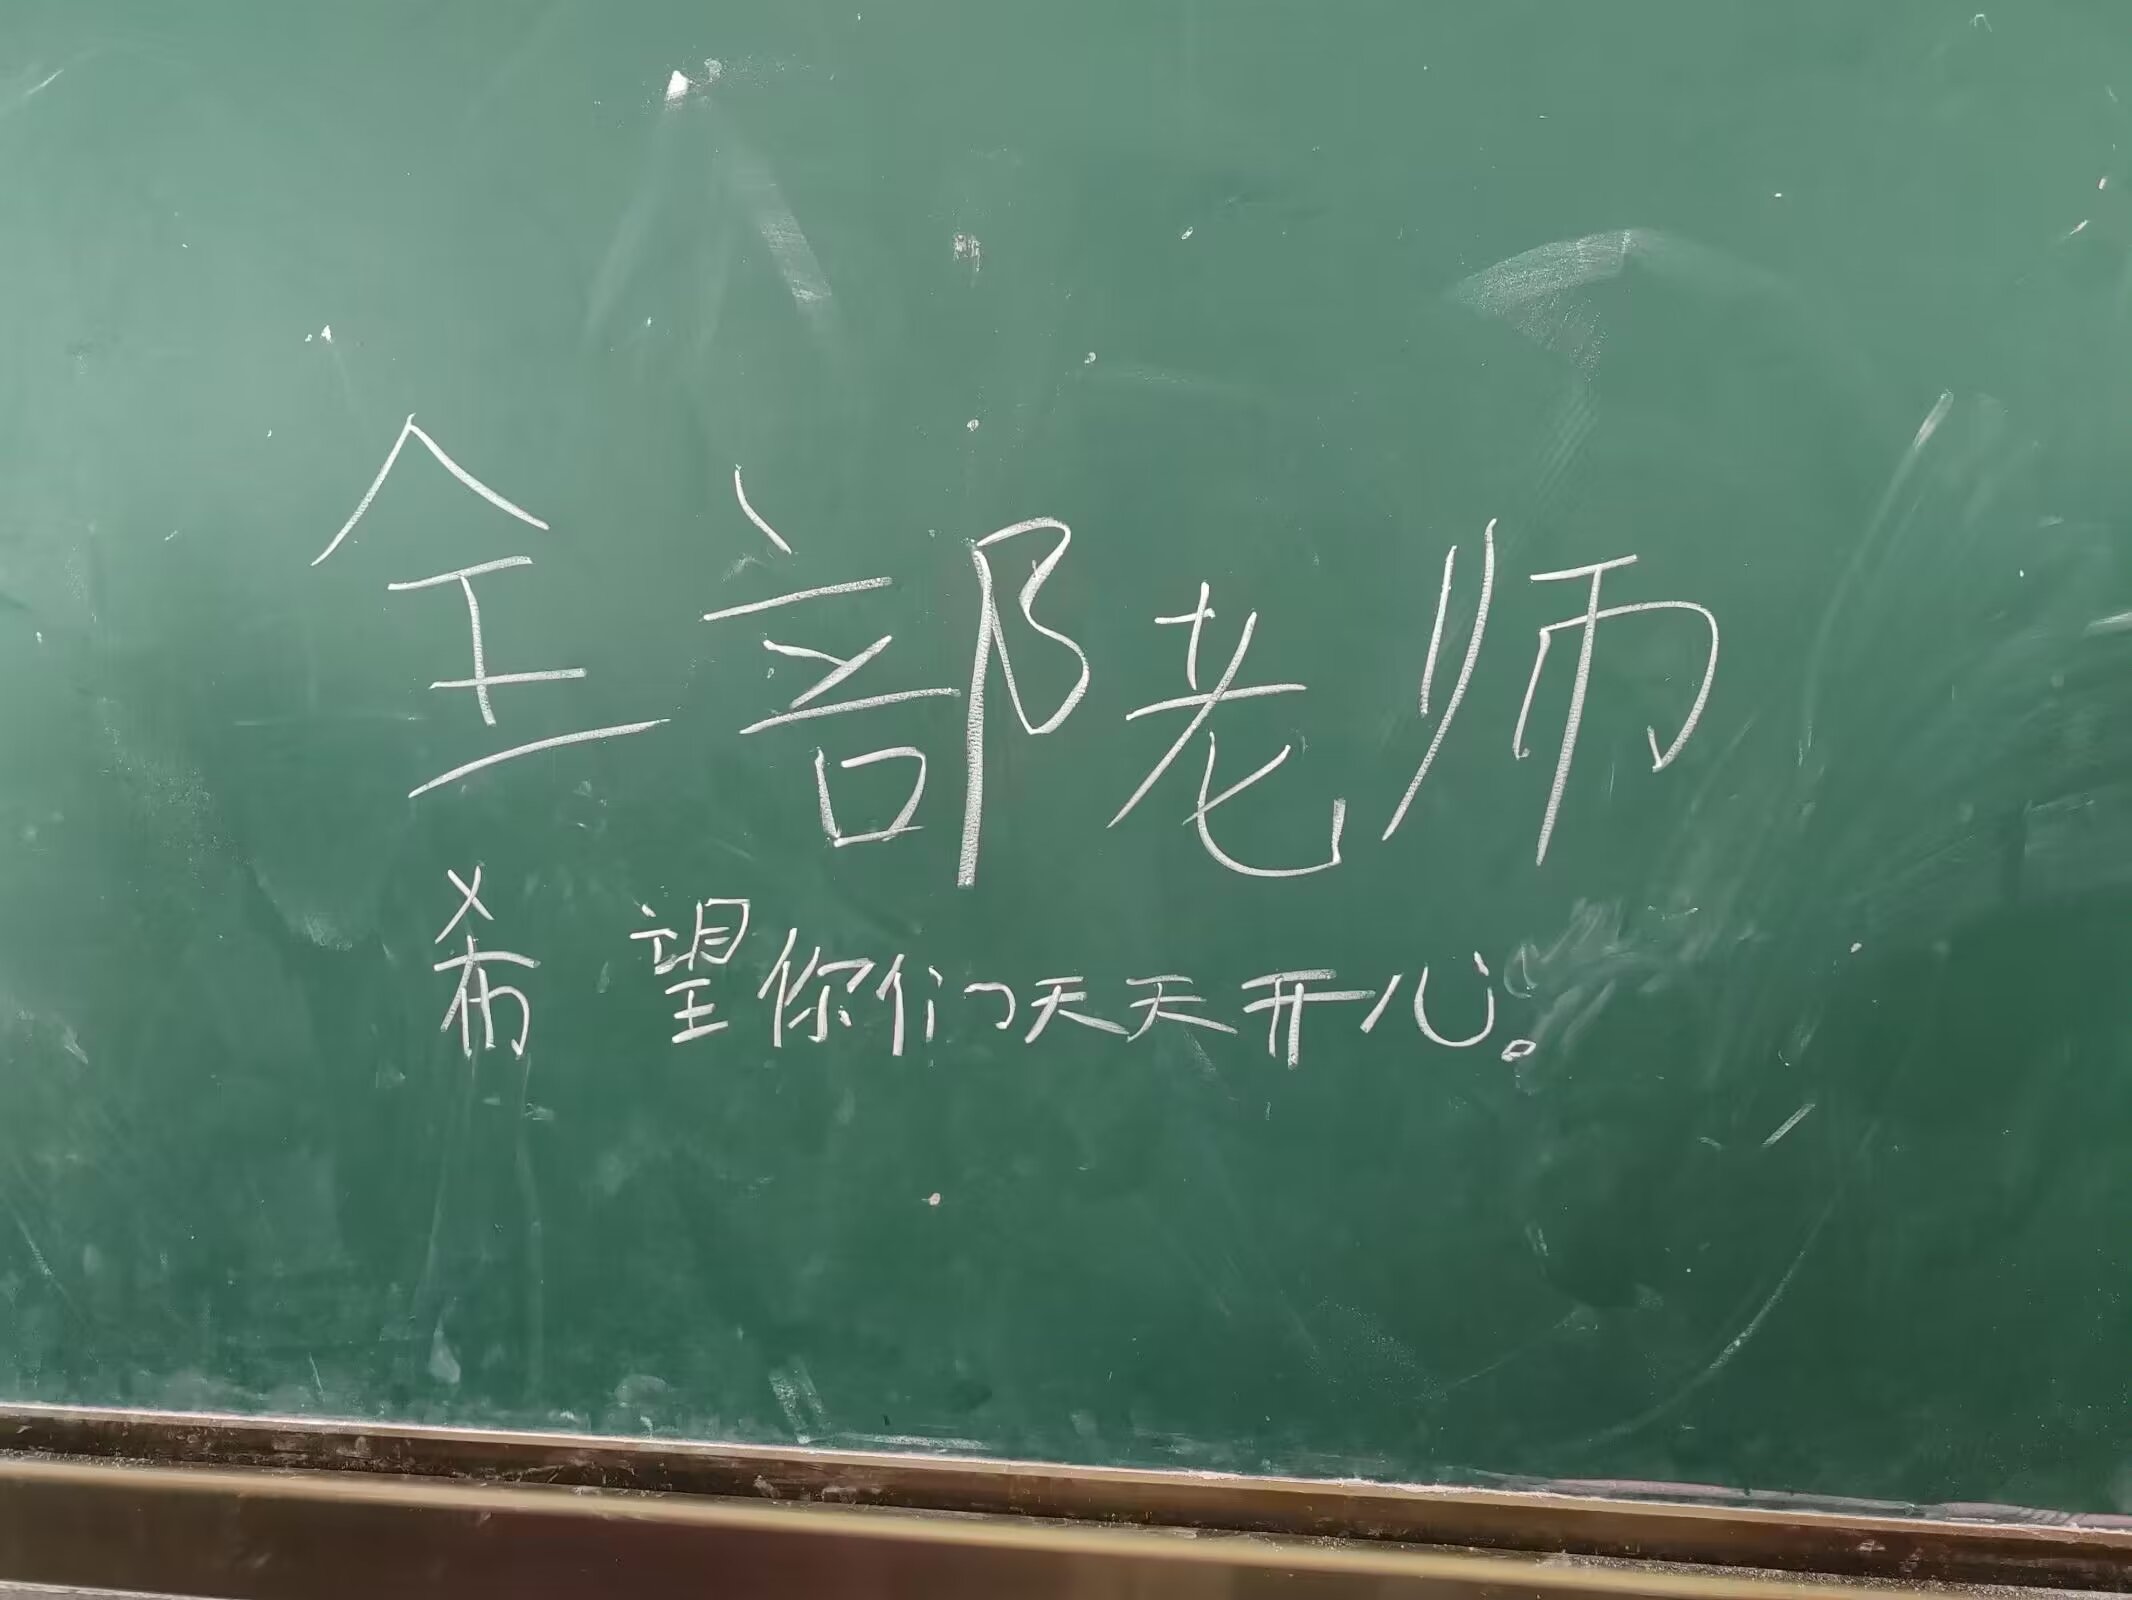 全部老师
希望你们天天开心。